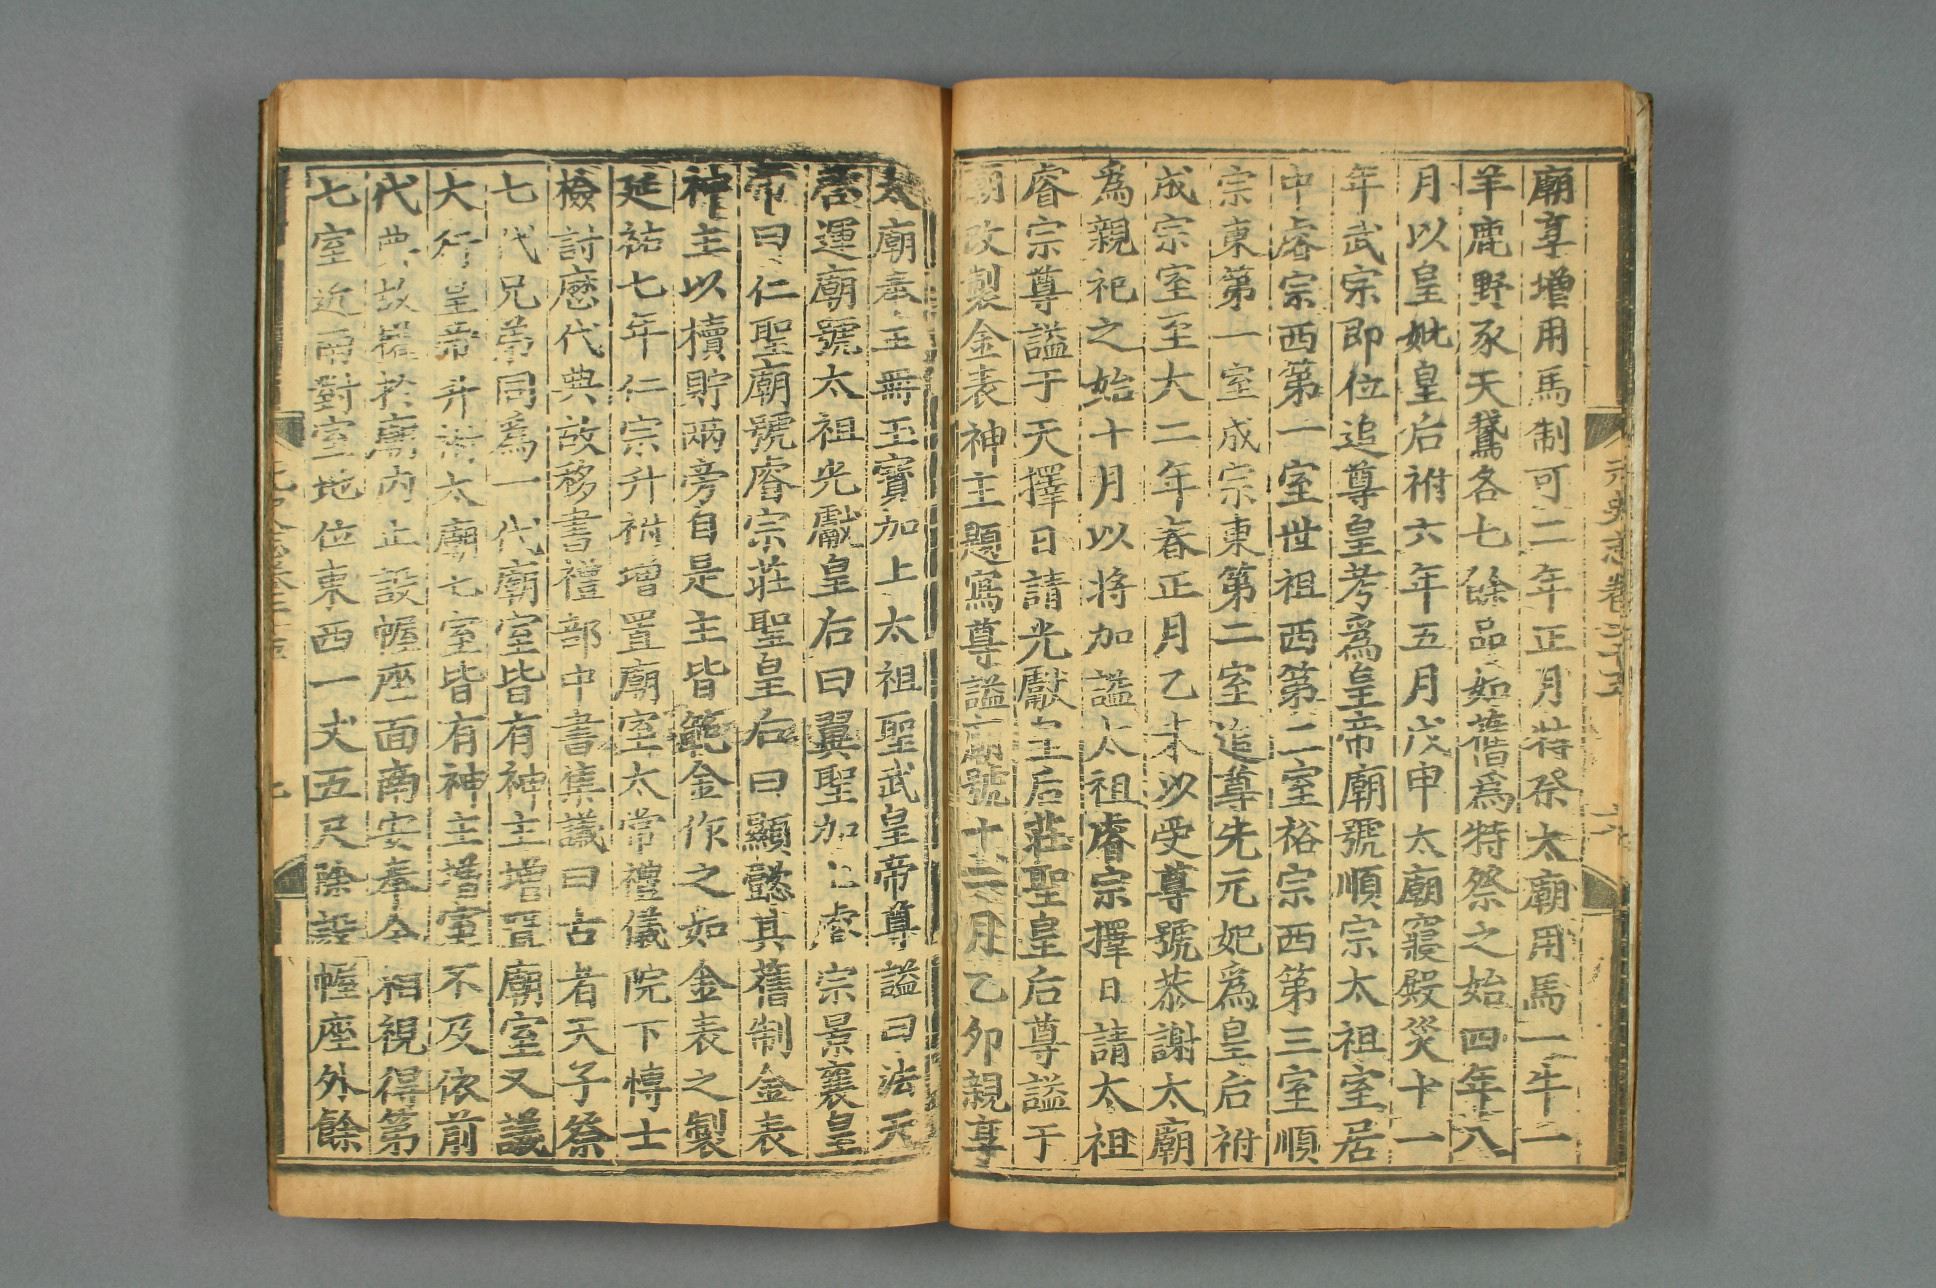 元史志卷二十五
六
廟享增用馬制可二年正月特祭太廟用馬一牛一
羊鹿野豕天鵝各七餘品如舊爲特祭之始四年八
月以皇妣皇后祔六年五月戊申太廟寢殿災十一
年武宗即位追尊皇考爲皇帝廟號順宗太祖室居
中睿宗西第一室世祖西第二室裕宗西第三室順
宗東第一室成宗東第二室追尊先元妃爲皇后祔
成宗室至大二年春正月乙未以受尊號恭謝太廟
爲親祀之始十月以將加謚太祖睿宗擇日請太祖
睿宗尊謚于天擇日請光獻皇后莊聖皇后尊謚于
廟改製金表神主題寫尊謚廟號十二月乙卯親享
太廟奉玉冊玉寶加上太祖聖武皇帝尊謚曰法天
啓運廟號太祖光獻皇后曰翼聖加上睿宗景襄皇
帝曰仁聖廟號睿宗莊聖皇后曰顯懿其舊制金表
神主以櫝貯兩旁自是主皆範金作之如金表之製
延祐七年仁宗升祔增置廟室太常禮儀院下博士
檢討歷代典故移書禮部中書集議曰古者天子祭
七代兄弟同爲一代廟室皆有神主增置廟室又議
大行皇帝升祔太廟七室皆有神主增室不及依前
代典故權於廟內止設幄座面南安奉今相視得第
七室近南對室地位東西一丈五尺除設幄座外餘
七